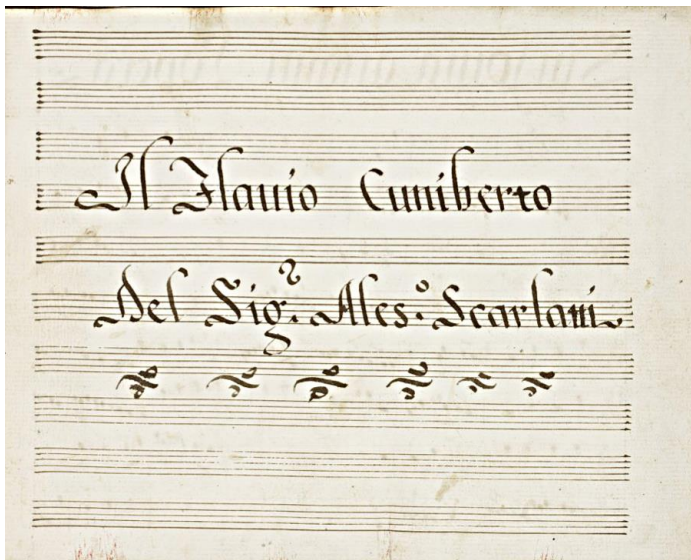 Il Flauio Cuniberto
Del Sig.r Ales.o Scarlatti